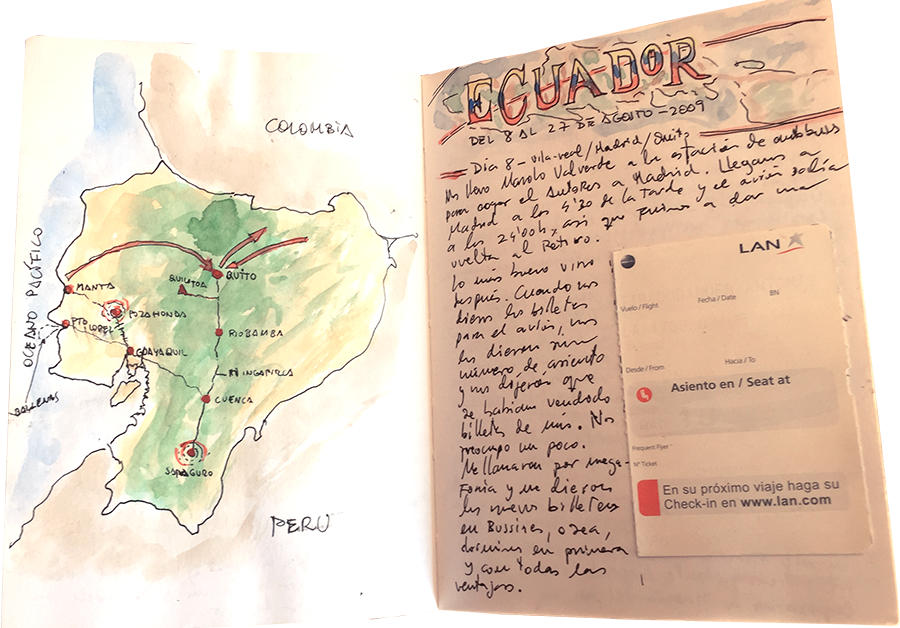 COLOMBIA
OCEANO PACÍFICO
MANTA
QUITO
QUILOTOA
POZAHONDA
PTO
LOPEZ
GUAYAQUIL
RIOBAMBA
INGAPIRCA
CUENCA
BALLENAS
SARAGURO
PERÚ
ECUADOR
DEL 8 AL 27 DE AGOSTO - 2009
- Día 8 - Vila-real/Madrid/Quito
Nos llevo Manolo Valverde a la estación de autobuses
para coger el AutoRes a Madrid. Llegamos a
Madrid a las 4'30 de la tarde y el avión salía
a las 24'00h, así que fuimos a dar una
vuelta al Retiro.
Lo más bueno vino
después. Cuando nos
dieron los billetes
para el avión, nos
los dieron sin
número de asiento
y nos dijeron que
se habían vendido
billetes de más. Nos
preocupo un poco.
Me llamaron por mega-
fonía y me dieron
los nuevos billetes
en Bussines, o sea,
dormimos en primera
y con todas las
ventajas.
LAN
Vuelo / Flight
Fecha / Date
BN
Desde / From
Hacia / To
Asiento en / Seat at
Frequent Flyer
Nº Ticket
En su próximo viaje haga su
Check-in en www.lan.com